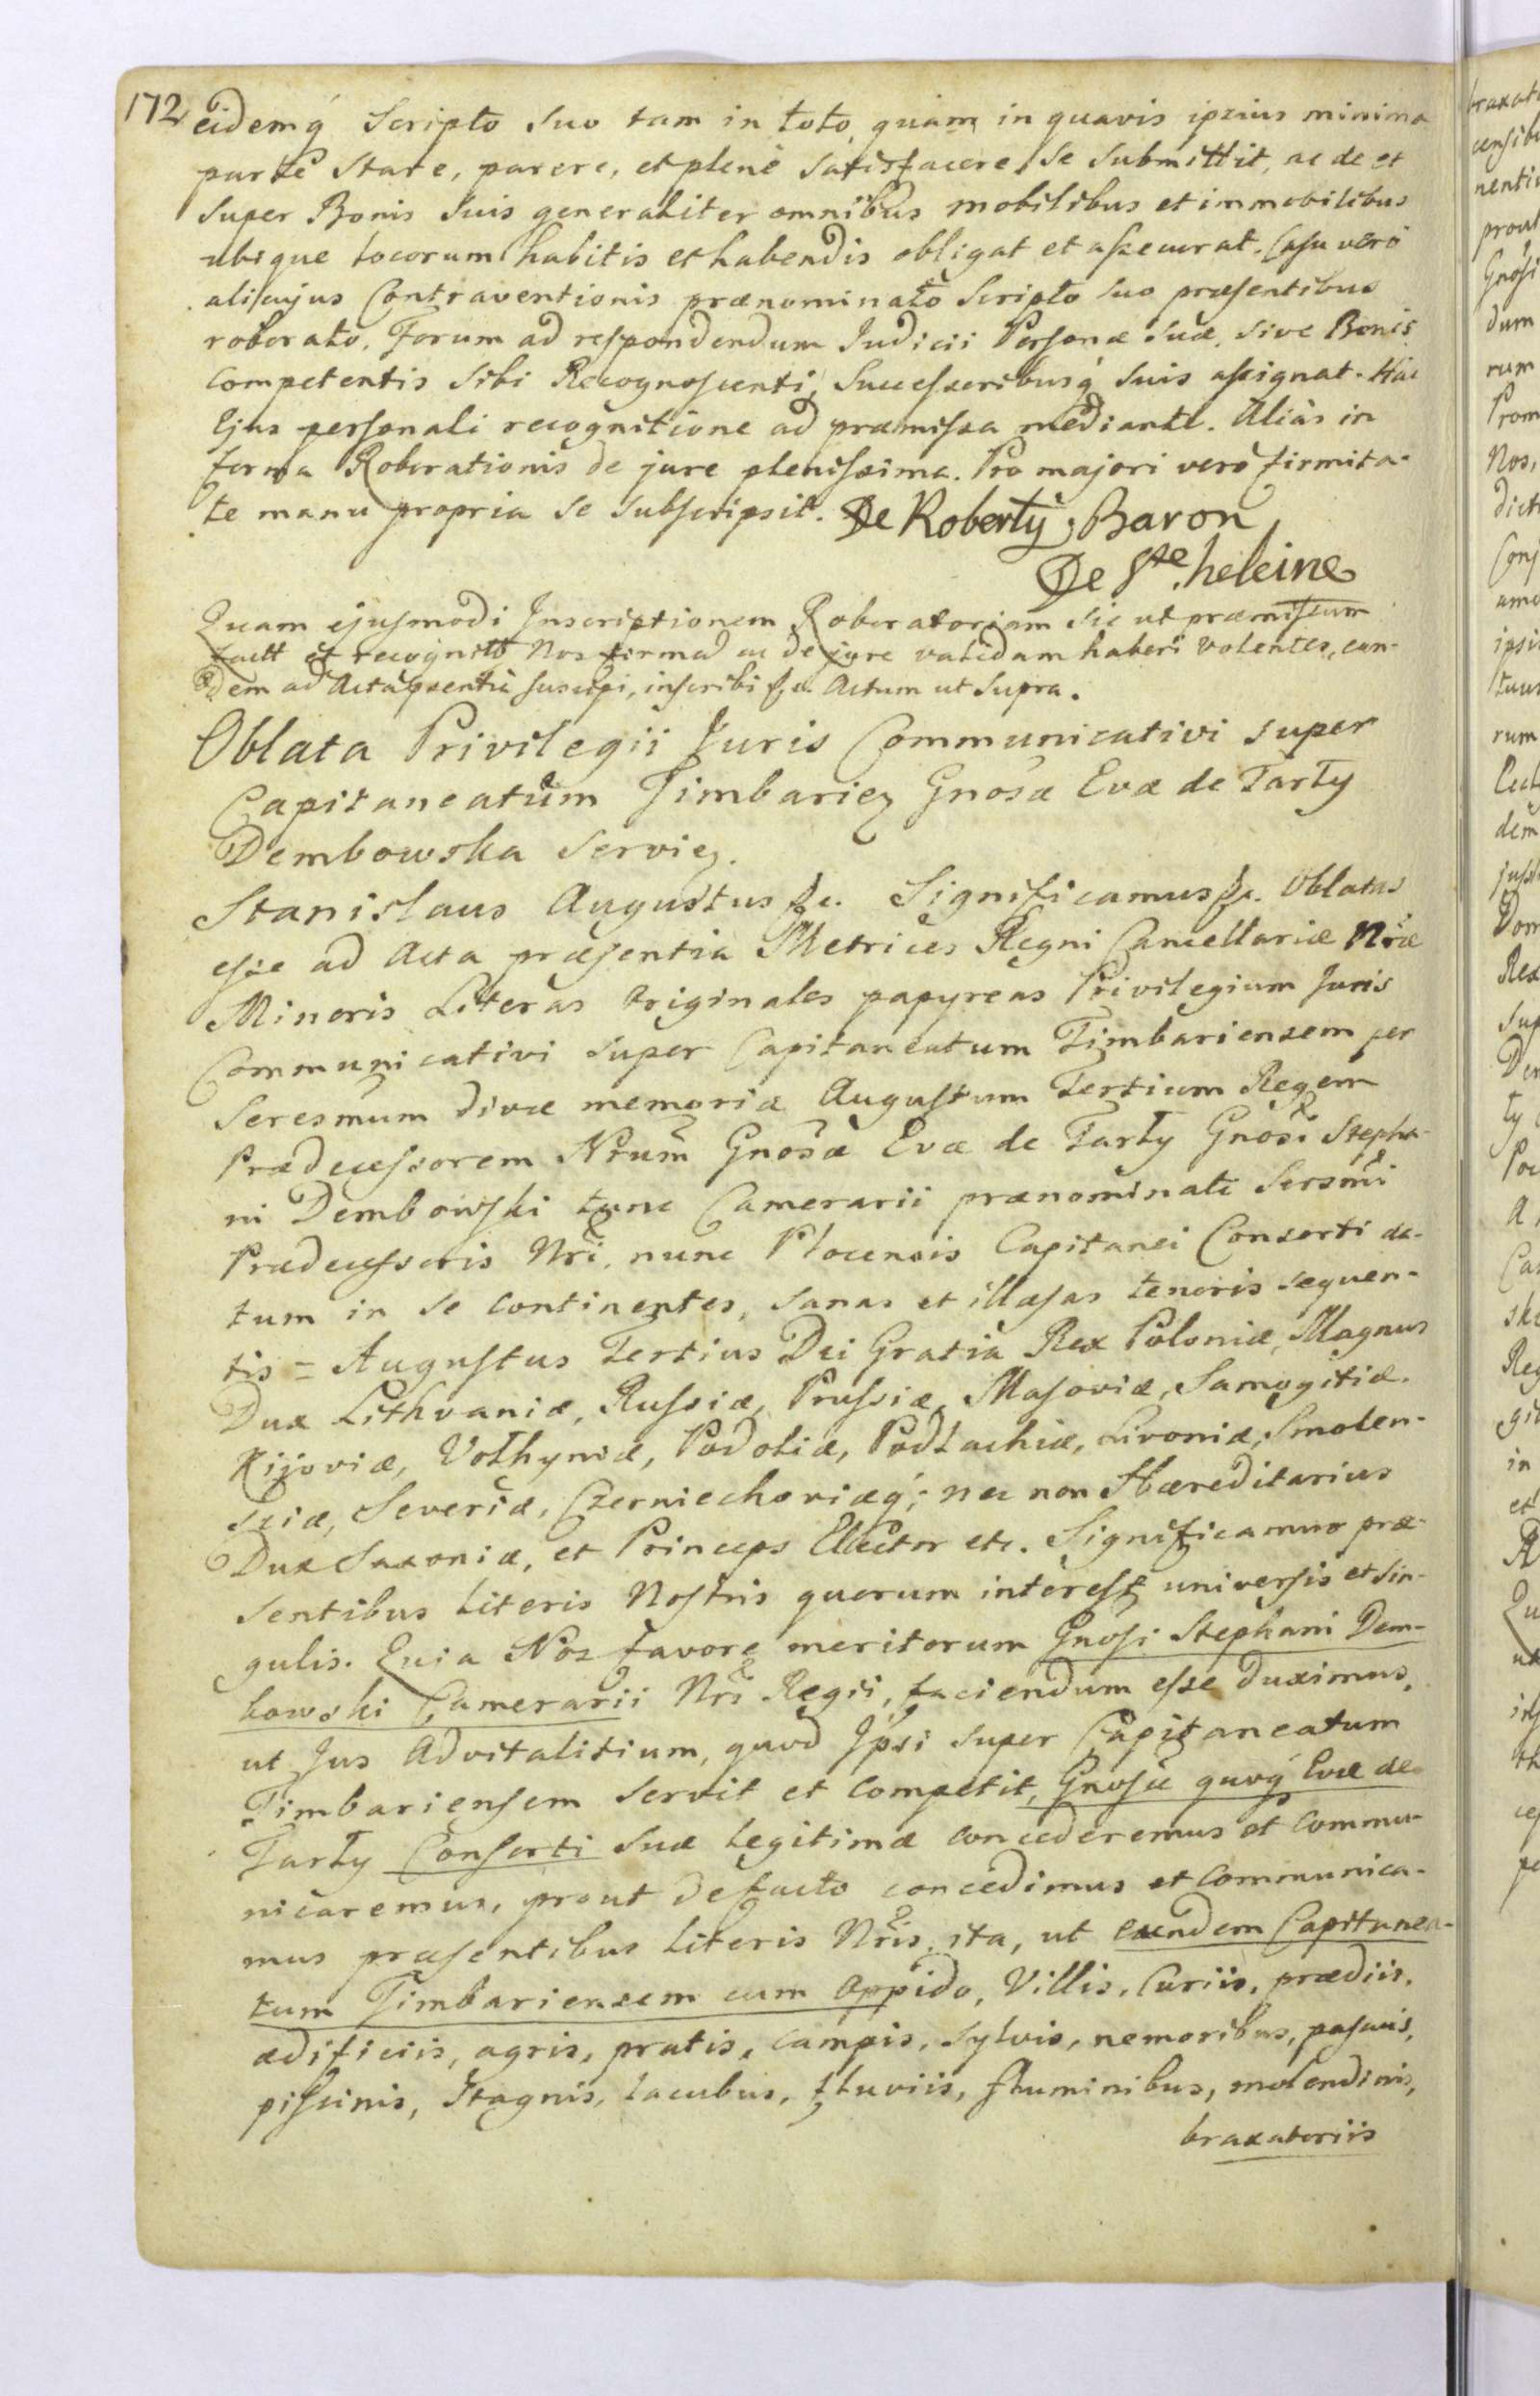 172 eidemq́ Scripto Suo tam in toto, quam in quavis ipsius minima
parte Stare, parere, et plenè Satisfacere, Se Submittit, ac de et
Super Bonis Suis generaliter omnibus mobilibus et immobilibus
ubique locorum habitis et habendis obligat et assecurat. Casu verò
alicujus Contraventionis prænominato Scripto Suo præsentibus
roborato, Forum ad respondendum Judicii Personæ Suæ, Sive Bonis
Competentis Sibi Recognoscenti, Successoribusq́ Suis assignat. Hac
Ejus personali recognitione ad præmissa mediante. Aliàs in
forma Roborationis de jure plenissima. Pro majori verò firmita-
te manu propria Se Subscripsit. De Roberty, Baron
De Ste. heleine
Quam ejusmodi Inscriptionem Roboratoriam Sic ut præmissum
et Nos ac de jure validam haberi Volentes, ean-
dem ad Acta suscipi, inscribi &c. Actum ut Supra.
Oblata Privilegii Juris Communicativi super
Capitaneatum Timbariez Gnosæ Evæ de Tarły
Dembowska Serviez.
Stanislaus Augustus &c. Significamus &c. Oblatas
esse ad Acta præsentia Metrices Regni Cancellariæ Nræ
Minoris Literas Originales papyreas Privilegium Juris
Communicativi Super Capitaneatum Timbariensem per
Seresmum divæ memoriæ Augustum Tertium Regem
Prædecessorem Nrum Gnosæ Evæ de Tarły Gnosi Stepha-
ni Dembowski tunc Camerarii prænominati Sersmi
Prædecessoris Nri, nunc Plocensis Capitanei Consorti da-
tum in Se Continentes, Sanas et illæsas tenoris sequen-
tis = Augustus Tertius Dei Gratia Rex Poloniæ, Magnus
Dux Lithvaniæ, Russiæ, Prussiæ, Masoviæ, Samogitiæ.
Kijoviæ, Volhyniæ, Podoliæ, Podlachiæ, Livoniæ, Smolen-
sciæ, Severiæ, Czerniechoviæq́; nec non Hæreditarius
Dux Saxoniæ, et Princeps Elector etc. Significamus præ-
sentibus Literis Nostris quorum interest universis et Sin-
gulis. Quia Nos favore meritorum Gnosi Stephani Dem-
bowski Camerarii Nri Regii, faciendum esse duximus,
ut Jus Advitalitium, quod Ipsi Super Capitaneatum
Timbariensem Servit et Competit, Gnosæ quoq́ Evæ de
Tarły Consorti Suæ Legitimæ concederemus et Commu-
nicaremus, prout defacto concedimus et Communica-
mus præsentibus Literis Nris, ita, ut eundem Capitanea-
tum Timbariensem cum Oppido, Villis, Curiis, prædiis,
ædificiis, agris, pratis, campis, Sylvis, nemoribus, pascuis,
piscinis, Stagnis, Lacubus, fluviis, fluminibus, molendinis,
braxatoriis